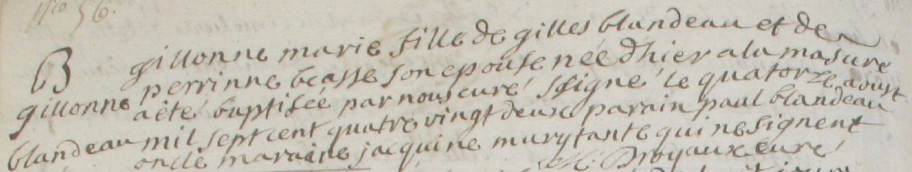 fo 56.
B gillonne marie fille de gilles blandeau et de
perrinne beasse son epouse née d'hier a la masure
gillonne a été baptisée par nous curé ssigné le quatorze aoust
blandeau mil sept cent quatre vingt deux parain paul blandeau
oncle maraine jacquine mury tante qui ne signent
curé